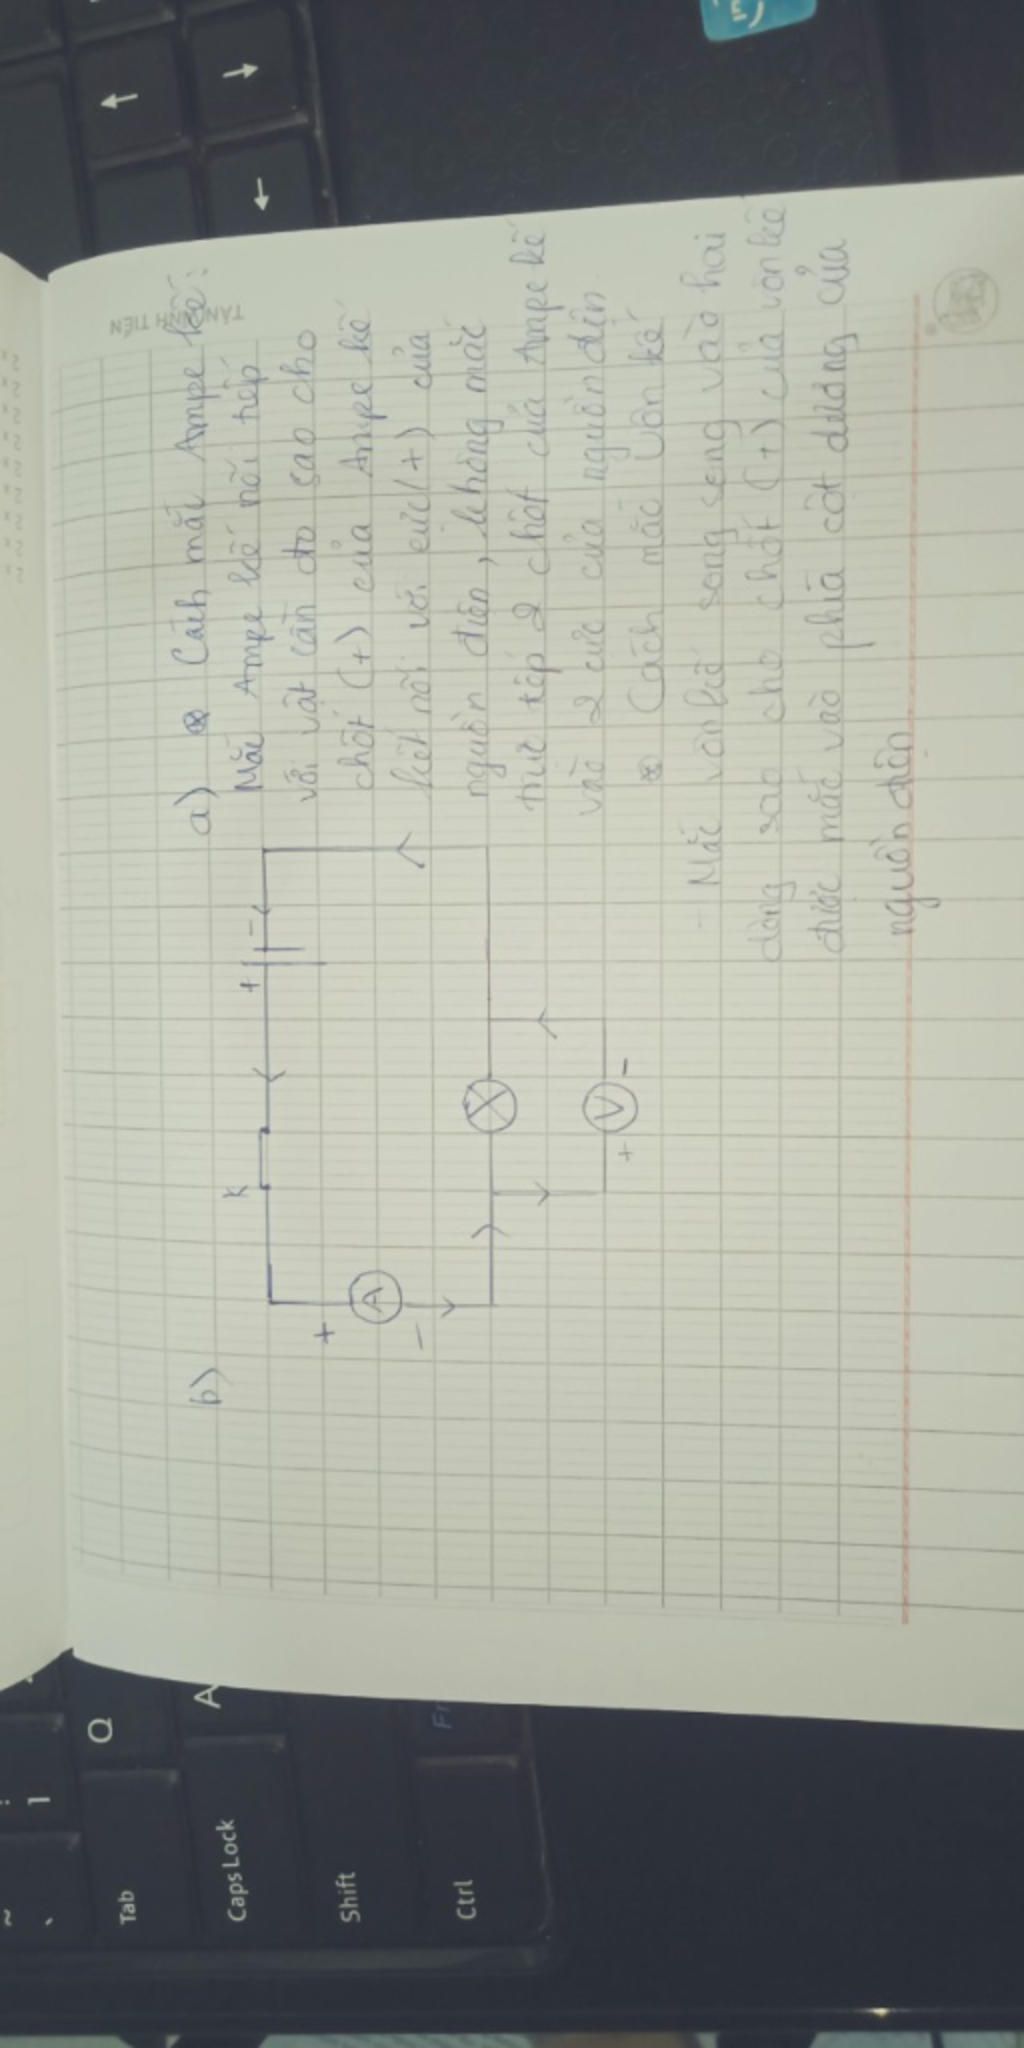 a) ⊛ Cách mắc Ampe kế:
Mắc Ampe kế nối tiếp
với vật cần đo sao cho
chốt (+) của Ampe kế
kết nối với cực (+) của
nguồn điện, không mắc
trực tếp 2 chốt của Ampe kế
vào 2 cực của nguồn điện
⊛ Cách mắc Vôn kế
- Mắc vôn kế song song vào hai
dòng sao cho chốt (+) của vôn kế
được mắc vào phía cột dương của
nguồn điện
b)
K
+ -
+
A
-
V
+ -
TÂN ĐỊNH TIẾN
Q
A
1
~
Tab
Caps Lock
Shift
Ctrl